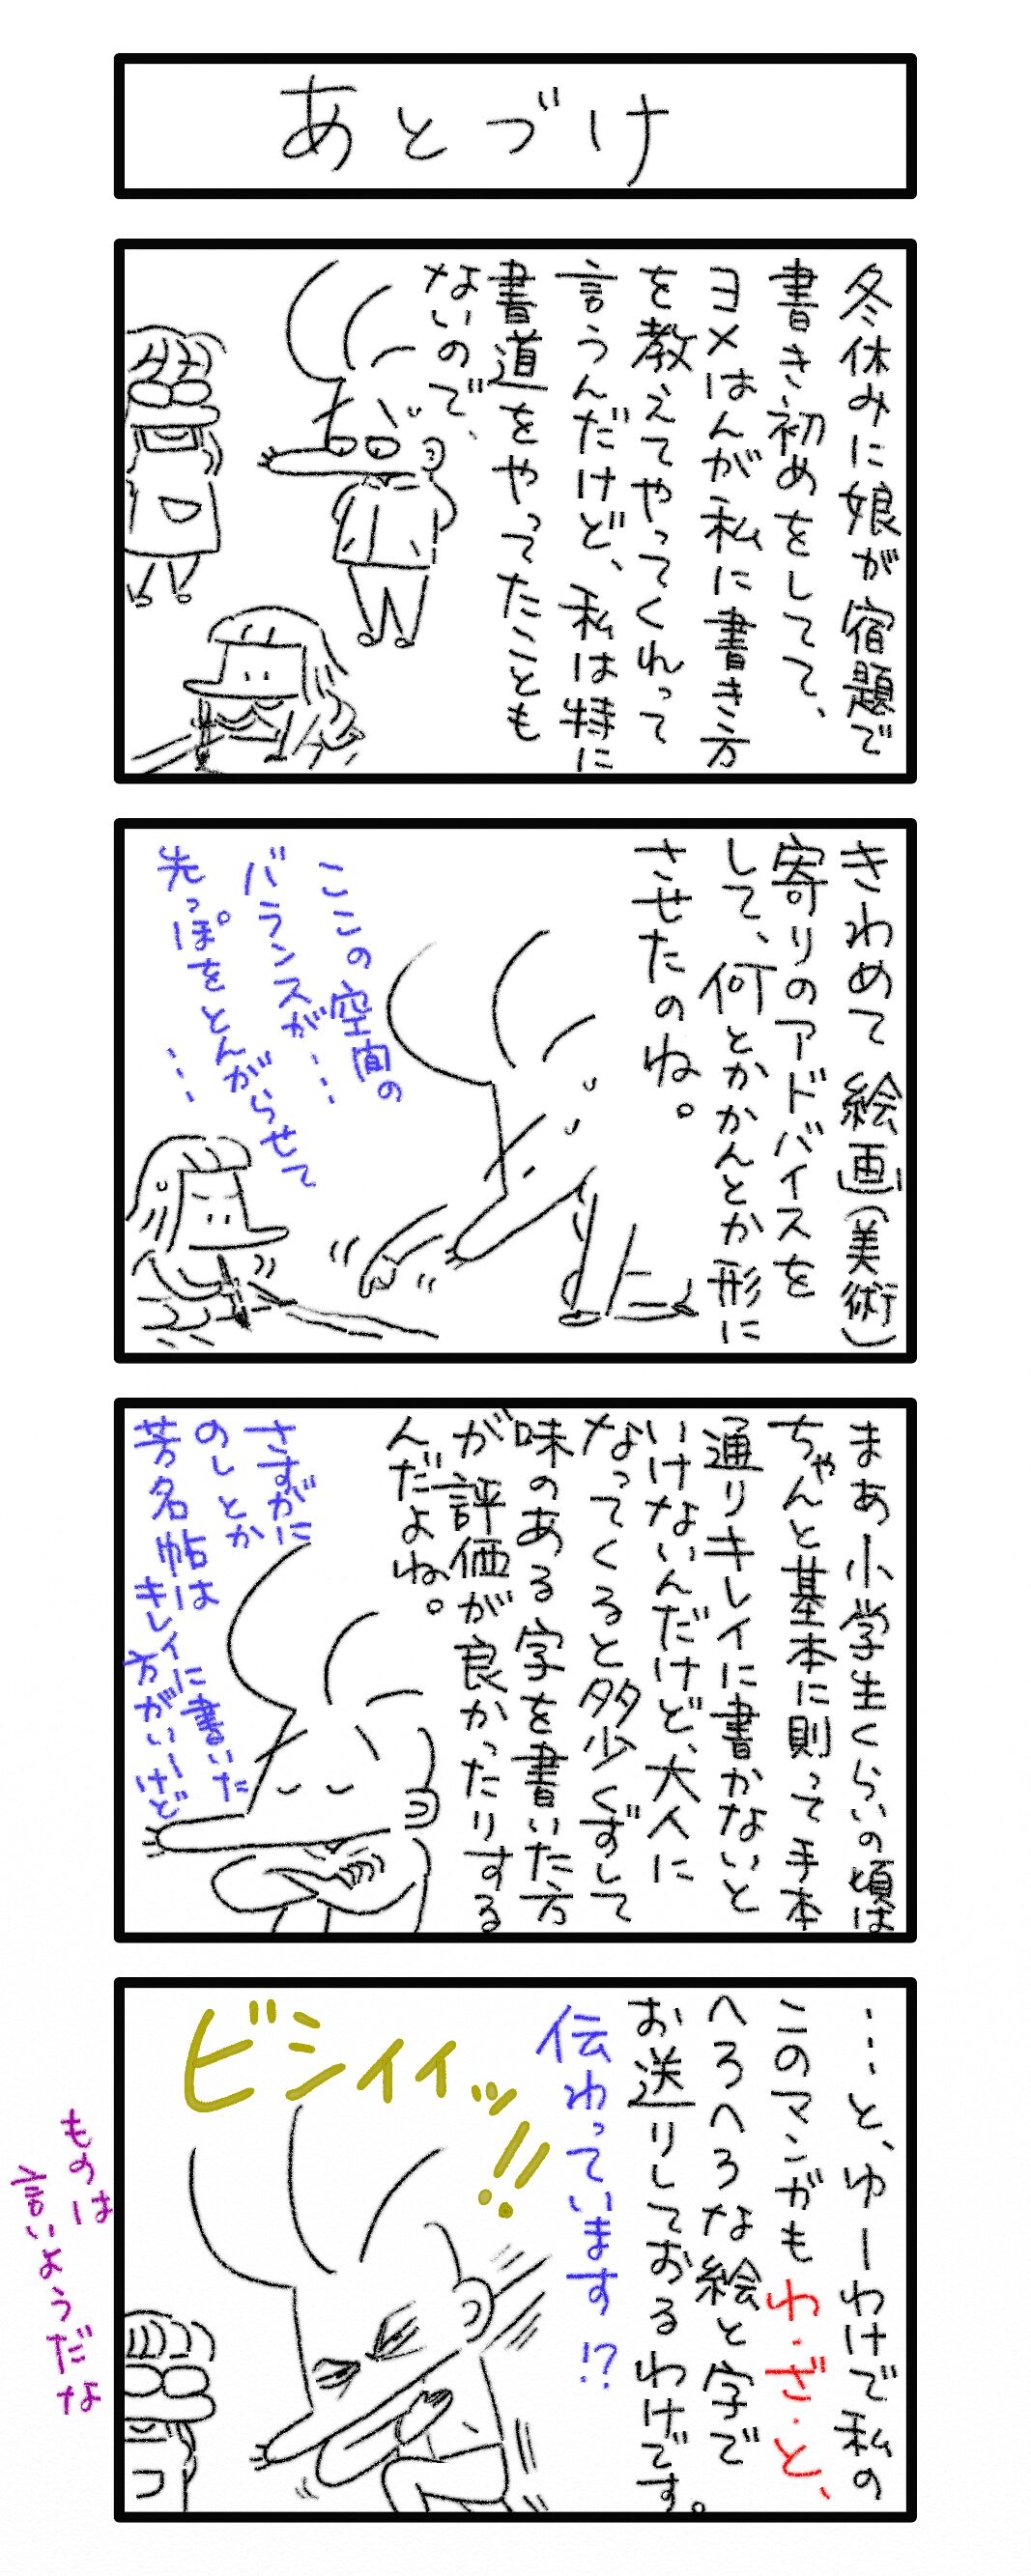 あとづけ
冬休みに娘が宿題で
書き初めをしてて、
ヨメはんが私に書き方
を教えてやってくれって
言うんだけど、私は特に
書道をやってたことも
ないので、
きわめて絵画(美術)
寄りのアドバイスを
して、何とかかんとか形に
させたのね。
ここの空間の
バランスが…
先っぽをとんがらせて
…
まあ小学生くらいの頃は
ちゃんと基本に則って手本
通りキレイに書かないと
いけないんだけど、大人に
なってくると多少くずして
味のある字を書いた方
が評価が良かったりする
んだよね。
さすがに
のしとか
芳名帖は
キレイに書いた
方がいいけど
…と、ゆーわけで私の
このマンガもわ・ざ・と、
へろへろな絵と字で
お送りしておるわけです。
伝わっています!?
ビシィィッ!!
ものは
言いようだな